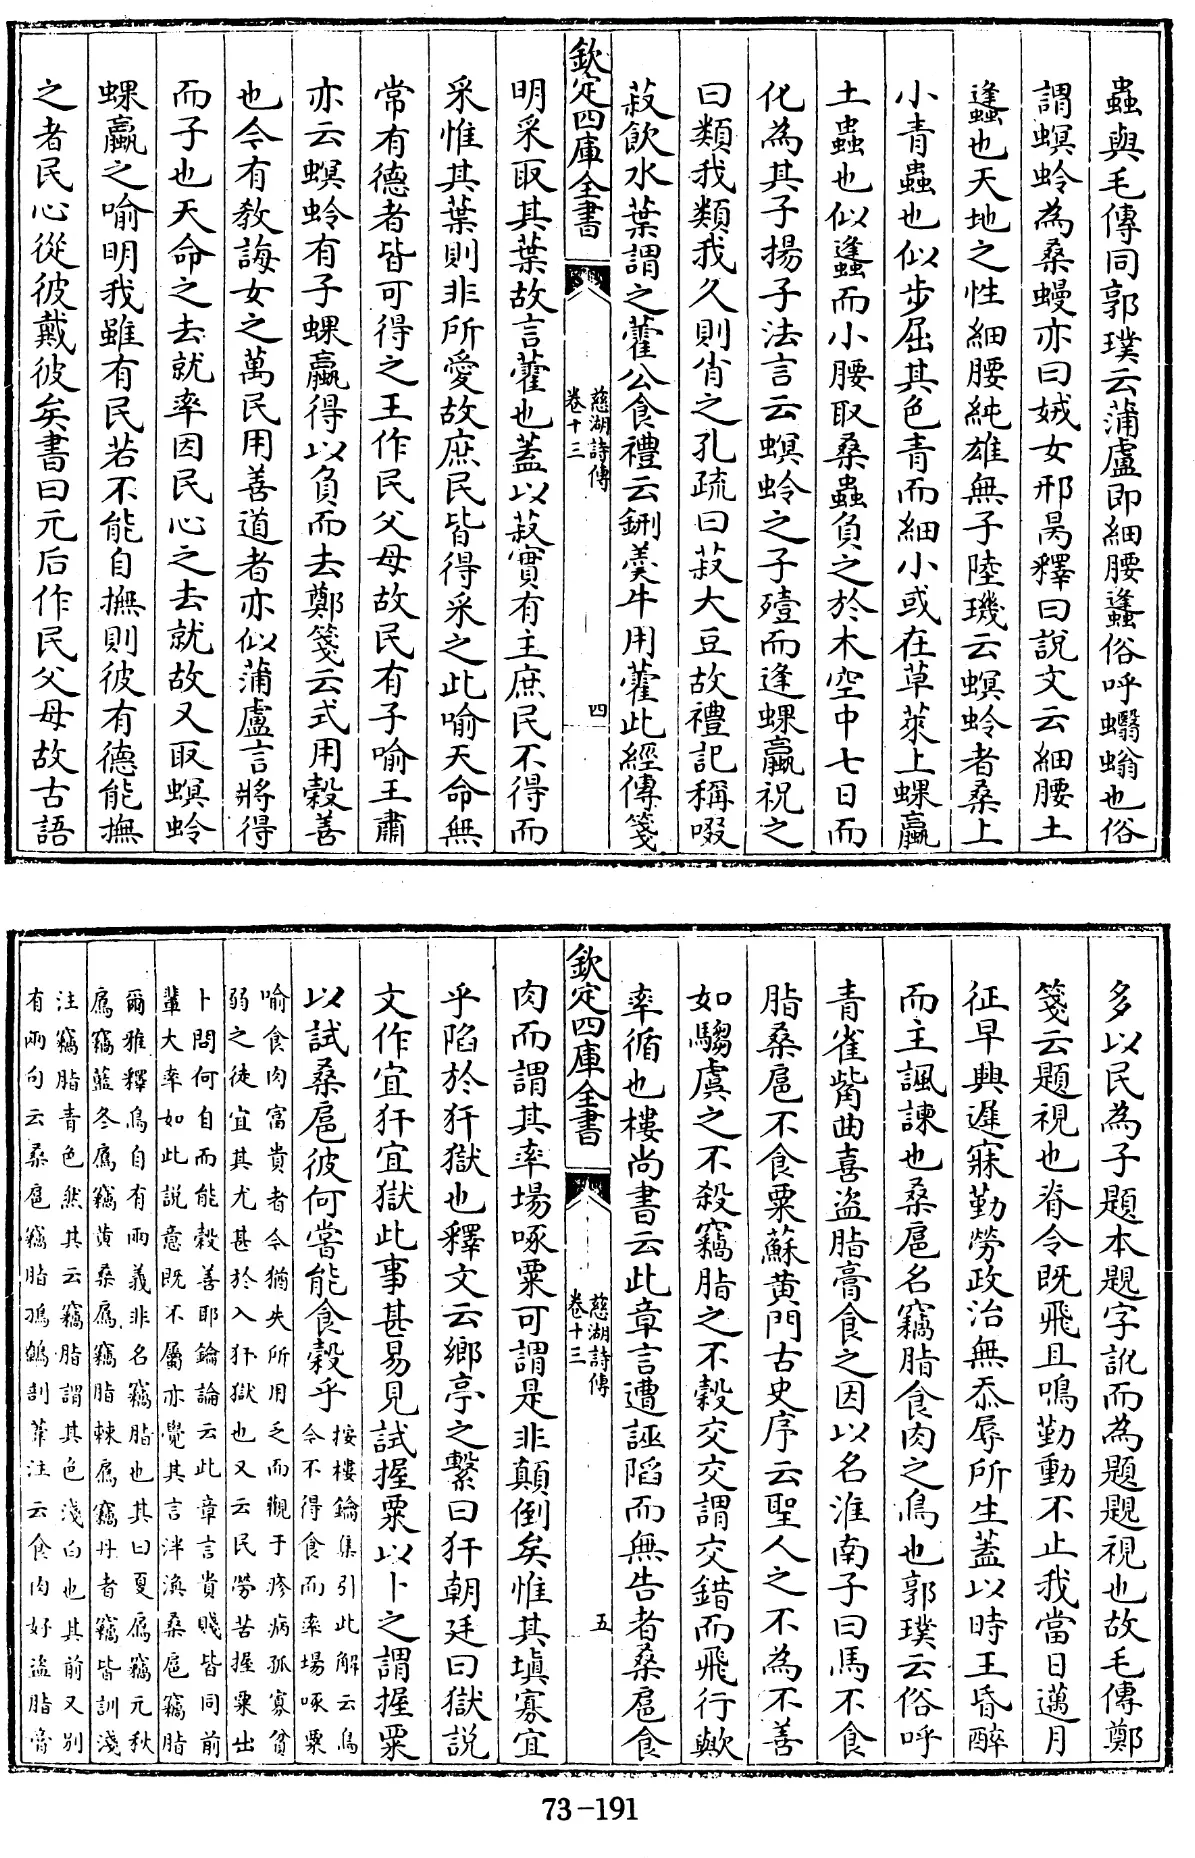 蟲與毛傳同郭璞云蒲盧即細腰蠭俗呼蠮螉也俗
謂螟蛉為桑蟃亦曰娀女邢昺釋曰說文云細腰土
蠭也天地之性細腰純雄無子陸璣云螟蛉者桑上
小青蟲也似步屈其色青而細小或在草萊上蜾蠃
土蟲也似蠭而小腰取桑蟲負之於木空中七日而
化為其子揚子法言云螟蛉之子殪而逢蜾蠃祝之
曰類我類我久則肖之孔疏曰菽大豆故禮記稱啜
菽飲水葉謂之藿公食禮云鉶羮牛用藿此經傳箋
欽定四庫全書
慈湖詩傳
卷十三
四
明采取其葉故言藿也蓋以菽實有主庶民不得而
采惟其葉則非所愛故庶民皆得采之此喻天命無
常有德者皆可得之王作民父母故民有子喻王肅
亦云螟蛉有子蜾蠃得以負而去鄭箋云式用穀善
也今有教誨女之萬民用善道者亦似蒲盧言將得
而子也天命之去就率因民心之去就故又取螟蛉
蜾蠃之喻明我雖有民若不能自撫則彼有德能撫
之者民心從彼戴彼矣書曰元后作民父母故古語
多以民為子題本題字訛而為題題視也故毛傳鄭
箋云題視也脊令既飛且鳴勤動不止我當日邁月
征早興遲寐勤勞政治無忝辱所生蓋以時王昏醉
而主諷諫也桑扈名竊脂食肉之鳥也郭璞云俗呼
青雀觜曲喜盜脂膏食之因以名淮南子曰馬不食
脂桑扈不食粟蘇黃門古史序云聖人之不為不善
如騶虞之不殺竊脂之不穀交交謂交錯而飛行歟
率循也樓尚書云此章言遭誣陷而無告者桑扈食
欽定四庫全書
慈湖詩傳
卷十三
五
肉而謂其率場啄粟可謂是非顛倒矣惟其塡寡宜
乎陷於犴獄也釋文云鄉亭之繫曰犴朝廷曰獄說
文作宜犴宜獄此事甚易見試握粟以卜之謂握粟
以試桑扈彼何嘗能食穀乎按樓鑰集引此解云鳥
今不得食而率場啄粟
喻食肉富貴者今猶失所用乏而觀于疹病孤寡貧
弱之徒宜其尤甚於入犴獄也又云民勞苦握粟出
卜問何自而能穀善耶鑰論云此章言貴賤皆同前
輩大率如此說意既不屬亦覺其言泮渙桑扈竊脂
爾雅釋鳥自有兩義非名竊脂也其曰夏扈竊元秋
扈竊藍冬扈竊黃桑扈竊脂棘扈竊丹者竊皆訓淺
注竊脂青色然其云竊脂謂其色淺白也其前又別
有兩句云桑扈竊脂鳭鷯剖葦注云食肉好盜脂膏
73-191